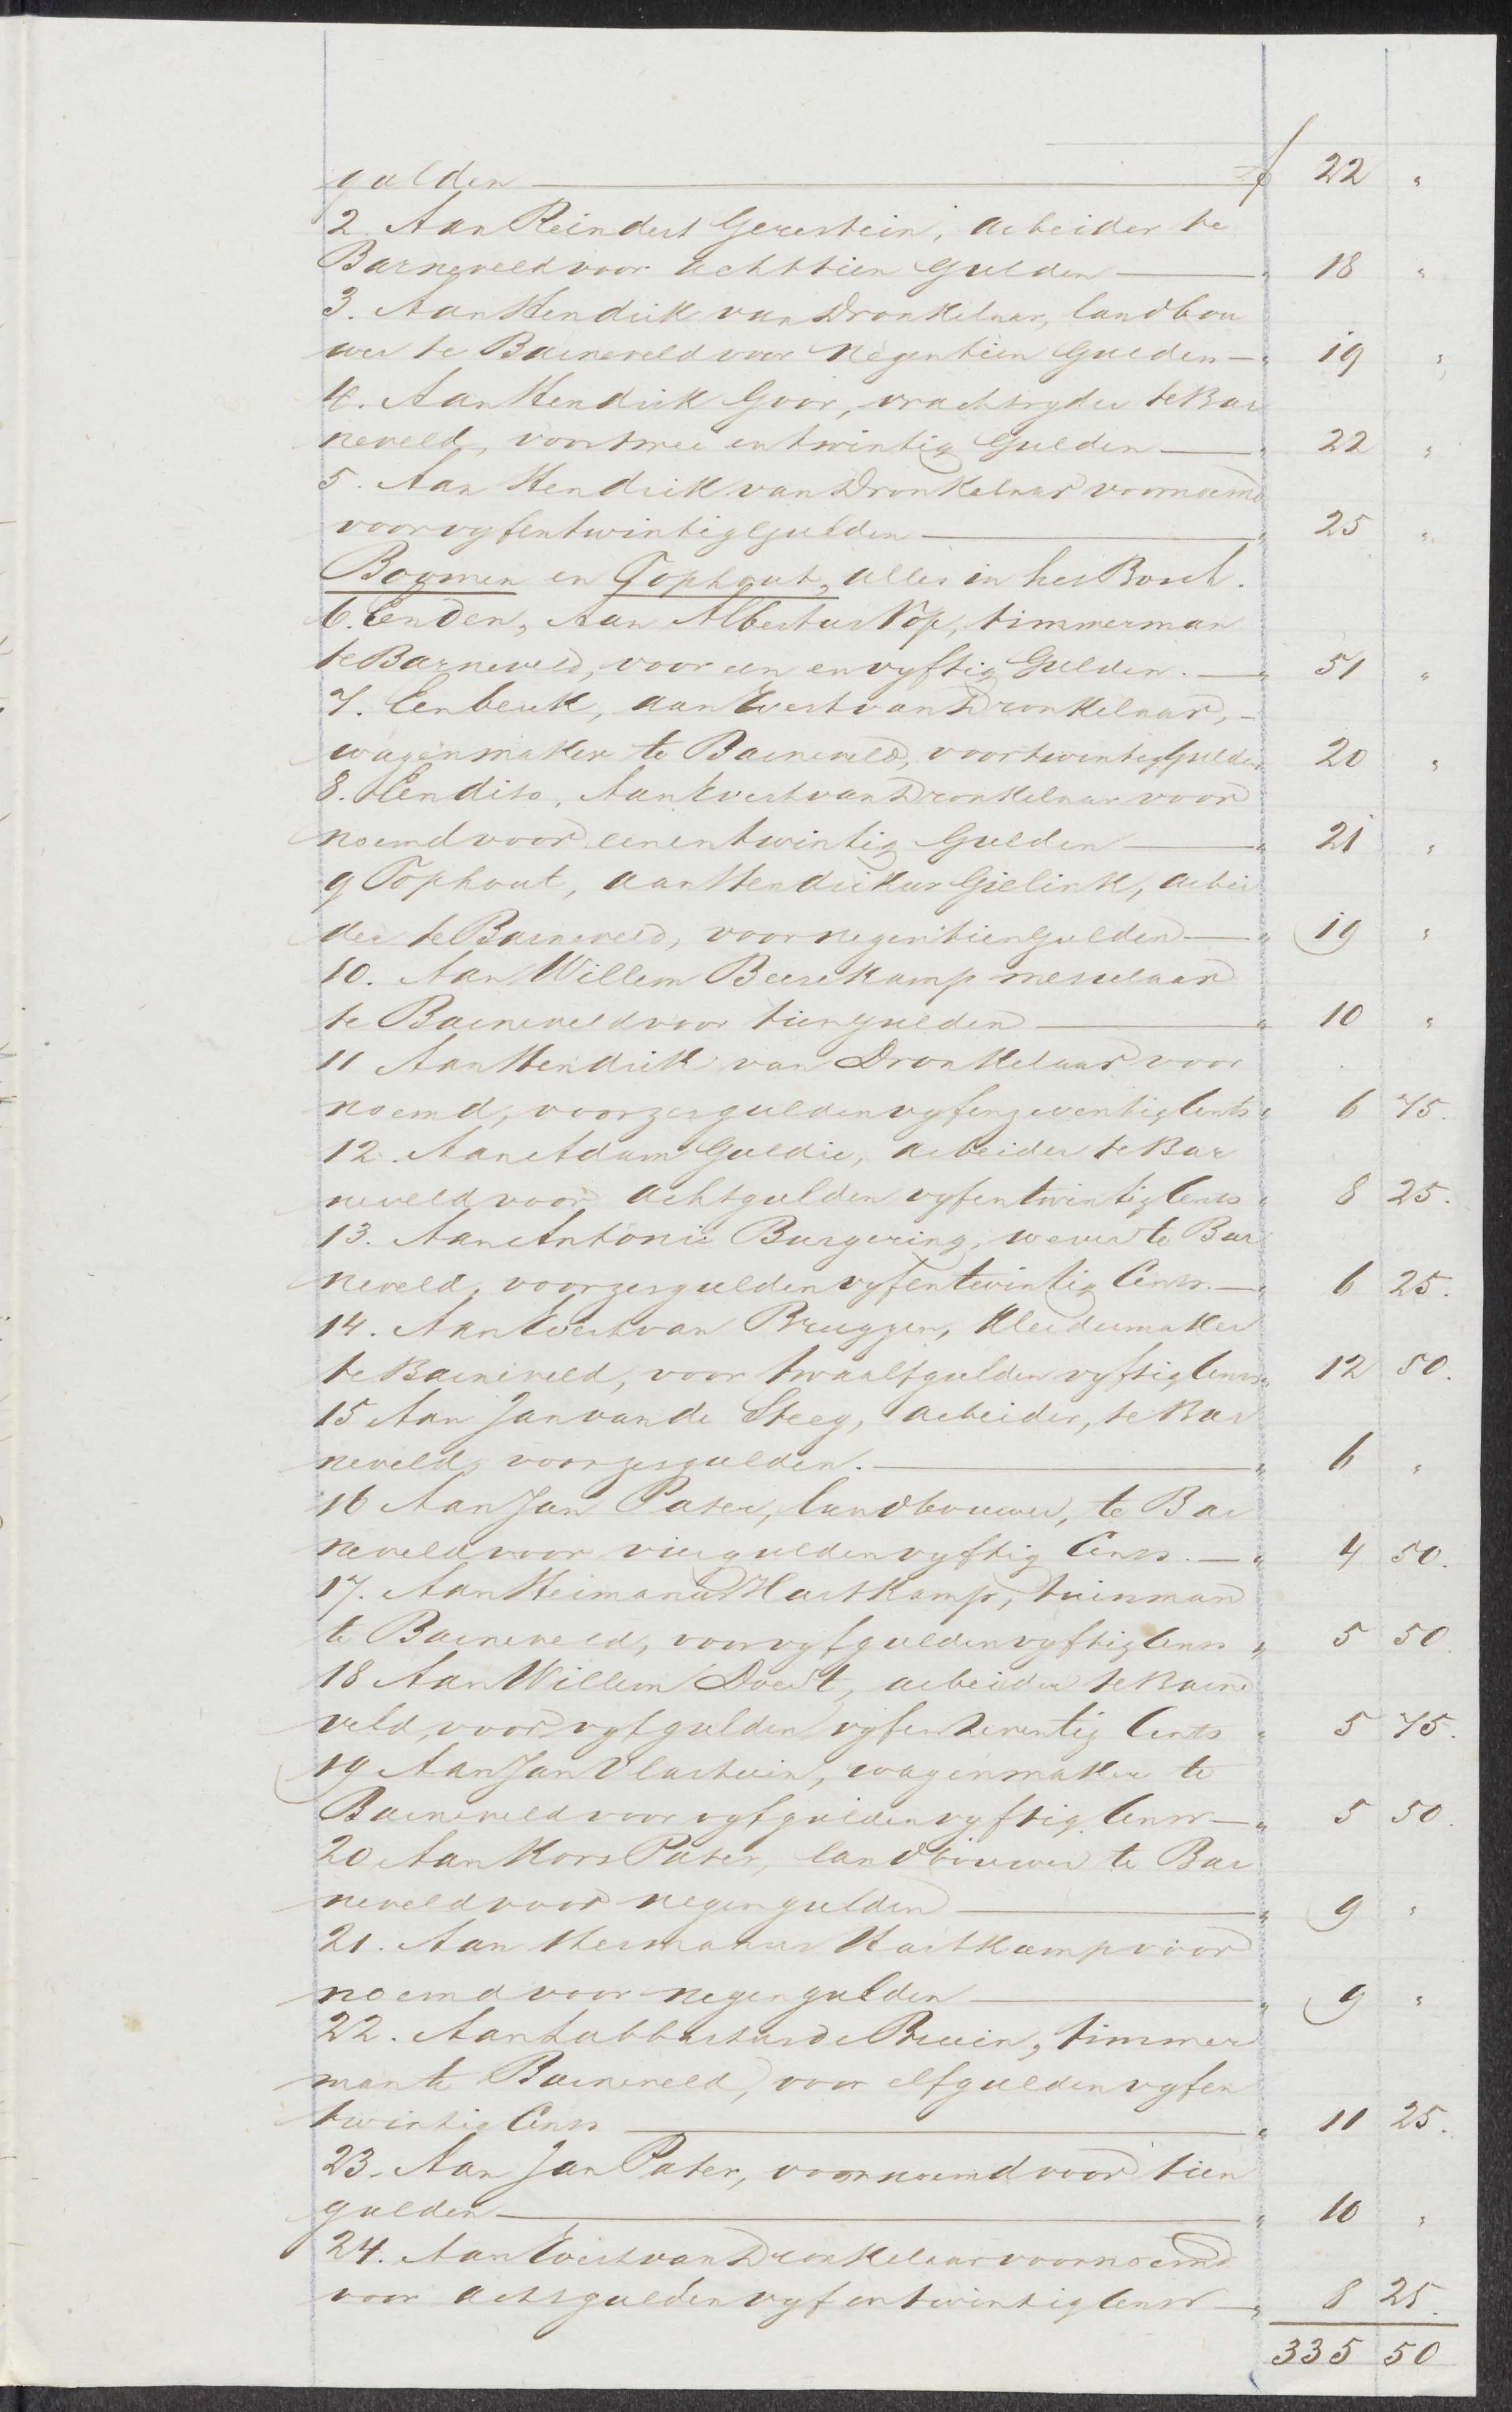 gulden — f 22 "
2. Aan Reindert Gerestein, arbeider te
Barneveld voor achttien Gulden — " 18 "
3. Aan Hendrik van Dronkelaar, landbou
wer te Barneveld voor negentien Gulden — " 19 "
4. Aan Hendrik Goor, vrachtryder te Bar
neveld, voor twee en twintig Gulden — " 22 "
5. Aan Hendrik van Dronkelaar voornoemd
voor vyfentwintig Gulden — " 25 "
Boomen en Tophout, alles in het Bosch.
6. Een Den, Aan Albertus Nop, timmerman
te Barneveld, voor een en vyftig Gulden. — " 51 "
7. Een beuk, aan Evert van Dronkelaar, -
wagenmaker te Barneveld, voor twintig Gulden 20 "
8. Een dito, Aan Evert van Dronkelaar voor
noemd voor eenentwintig Gulden — " 21 "
9 Tophout, aan Hendrikus Gielink, arbei
der te Barneveld, voor negentien Gulden — " 19 "
10. Aan Willem Beesekamp metselaar
te Barneveld voor tien gulden — " 10 "
11 Aan Hendrik van Dronkelaar voor
noemd, voor zes gulden vyfenzeventig Cents " 6 75.
12. Aan Adam Goldie, arbeider te Bar
neveld voor acht gulden vyfentwintig Cents " 8 25.
13. Aan Antonie Burgering, wever te Bar
neveld, voor zes gulden vyfentwintig Cents. — " 6 25.
14. Aan Evert van Bruggen, Kleedermaker
te Barneveld, voor twaalf gulden vyftig Cents " 12 50.
15 Aan Jan van de Steeg, arbeider, te Bar
neveld, voor zes gulden. — " 6 "
16 Aan Jan Pater, landbouwer, te Bar
neveld voor vier gulden vyftig Cents. — " 4 50.
17. Aan Heimanus Hartkamp, tuinman
te Barneveld, voor vyf gulden vyftig Cents " 5 50
18 Aan Willem Doest, arbeider te Barne
veld, voor vyf gulden vyfenzeventig Cents " 5 75.
19 Aan Jan Vlastuin, wagenmaker te
Barneveld voor vyf gulden vyftig Cents — " 5 50.
20 Aan Kors Pater, landbouwer te Bar
neveld voor negen gulden — " 9 "
21. Aan Hermanus Hartkamp voor
noemd voor negen gulden — " 9 "
22. Aan Lubbertus de Bruin, timmer
man te Barneveld, voor elf gulden vyfen
twintig Cents — " 11 25.
23. Aan Jan Pater, voornoemd voor tien
gulden — " 10 "
24. Aan Evert van Dronkelaar voornoemd
voor acht gulden vyfentwintig Cents — " 8 25.
335 50